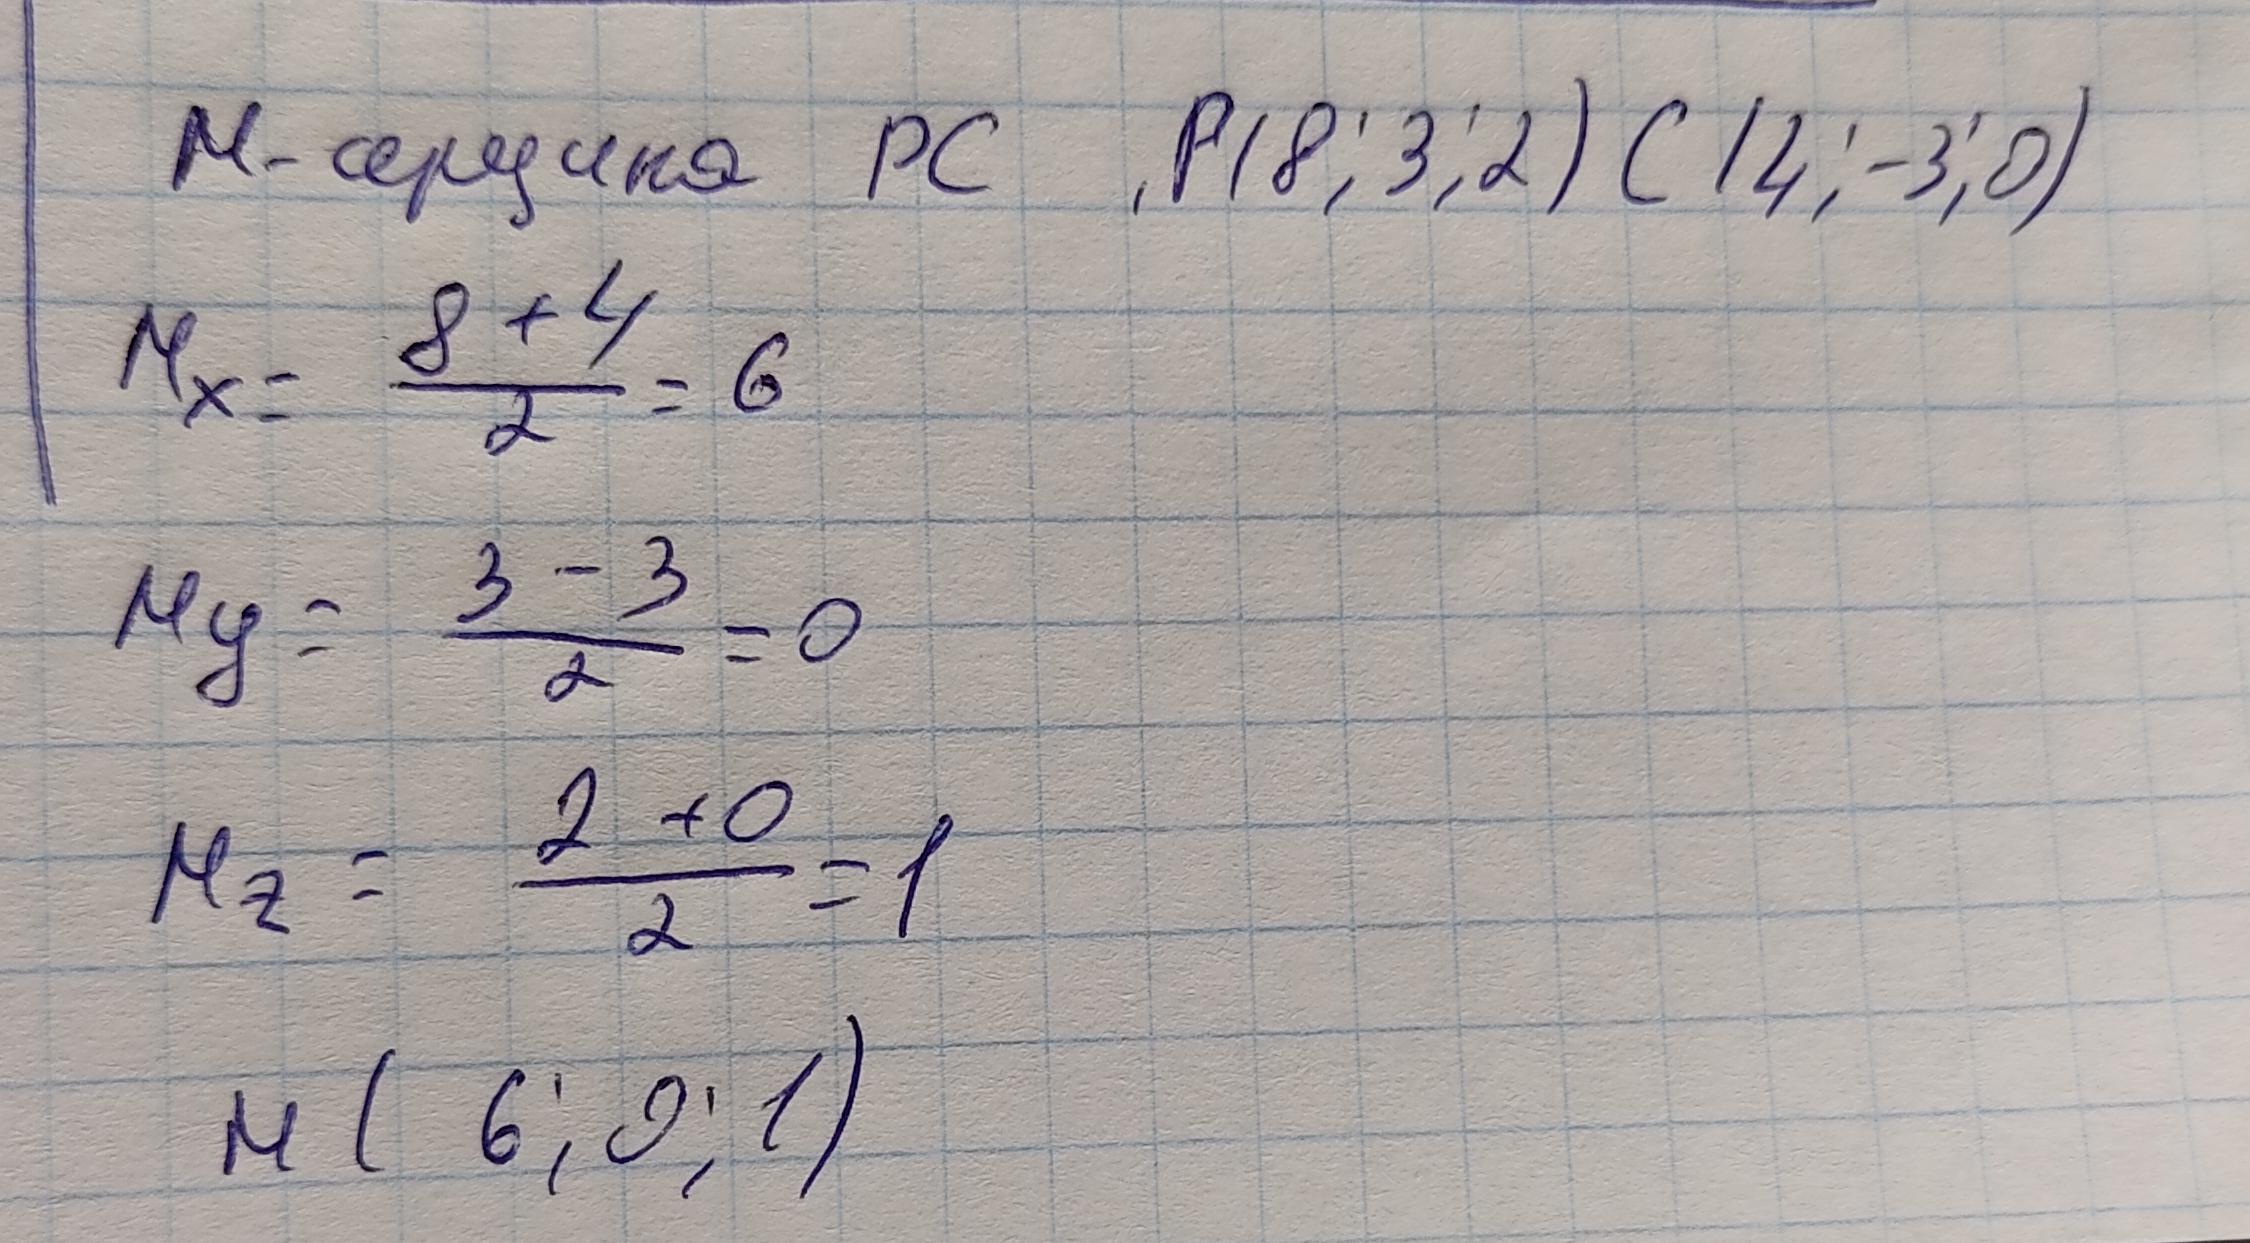 М-середина РС , Р(8; 3; 2) С(4; -3; 0)
Mx = (8 + 4)/2 = 6
My = (3 - 3)/2 = 0
Mz = (2 + 0)/2 = 1
М( 6; 0; 1)